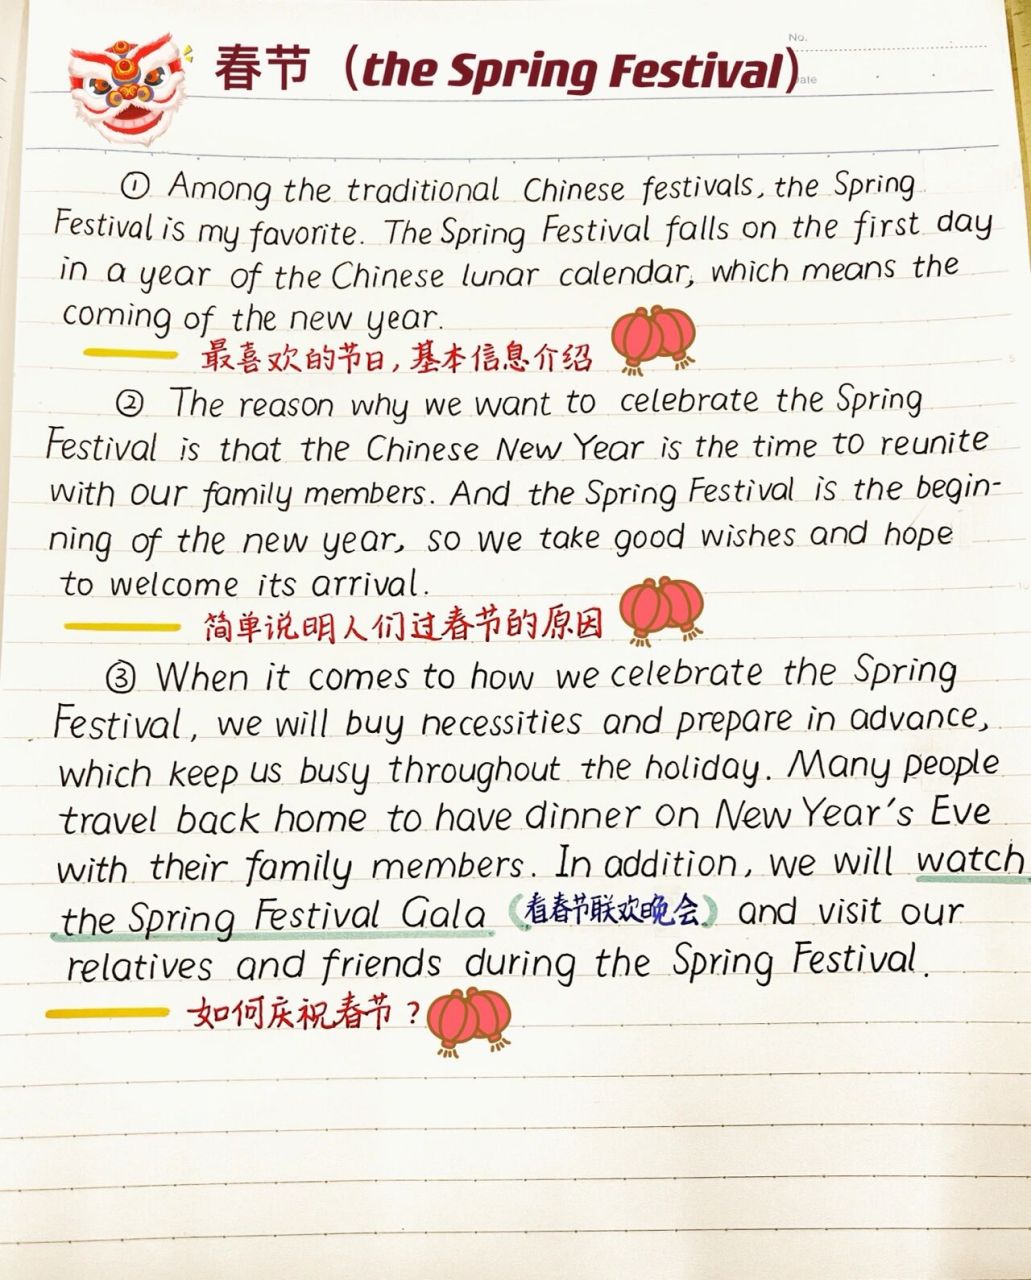 春节（the Spring Festival）
No.
Date
① Among the traditional Chinese festivals, the Spring
Festival is my favorite. The Spring Festival falls on the first day
in a year of the Chinese lunar calendar, which means the
coming of the new year.
最喜欢的节日,基本信息介绍
② The reason why we want to celebrate the Spring
Festival is that the Chinese New Year is the time to reunite
with our family members. And the Spring Festival is the begin-
ning of the new year, so we take good wishes and hope
to welcome its arrival.
简单说明人们过春节的原因
③ When it comes to how we celebrate the Spring
Festival, we will buy necessities and prepare in advance,
which keep us busy throughout the holiday. Many people
travel back home to have dinner on New Year's Eve
with their family members. In addition, we will watch
the Spring Festival Gala (看春节联欢晚会) and visit our
relatives and friends during the Spring Festival.
如何庆祝春节?